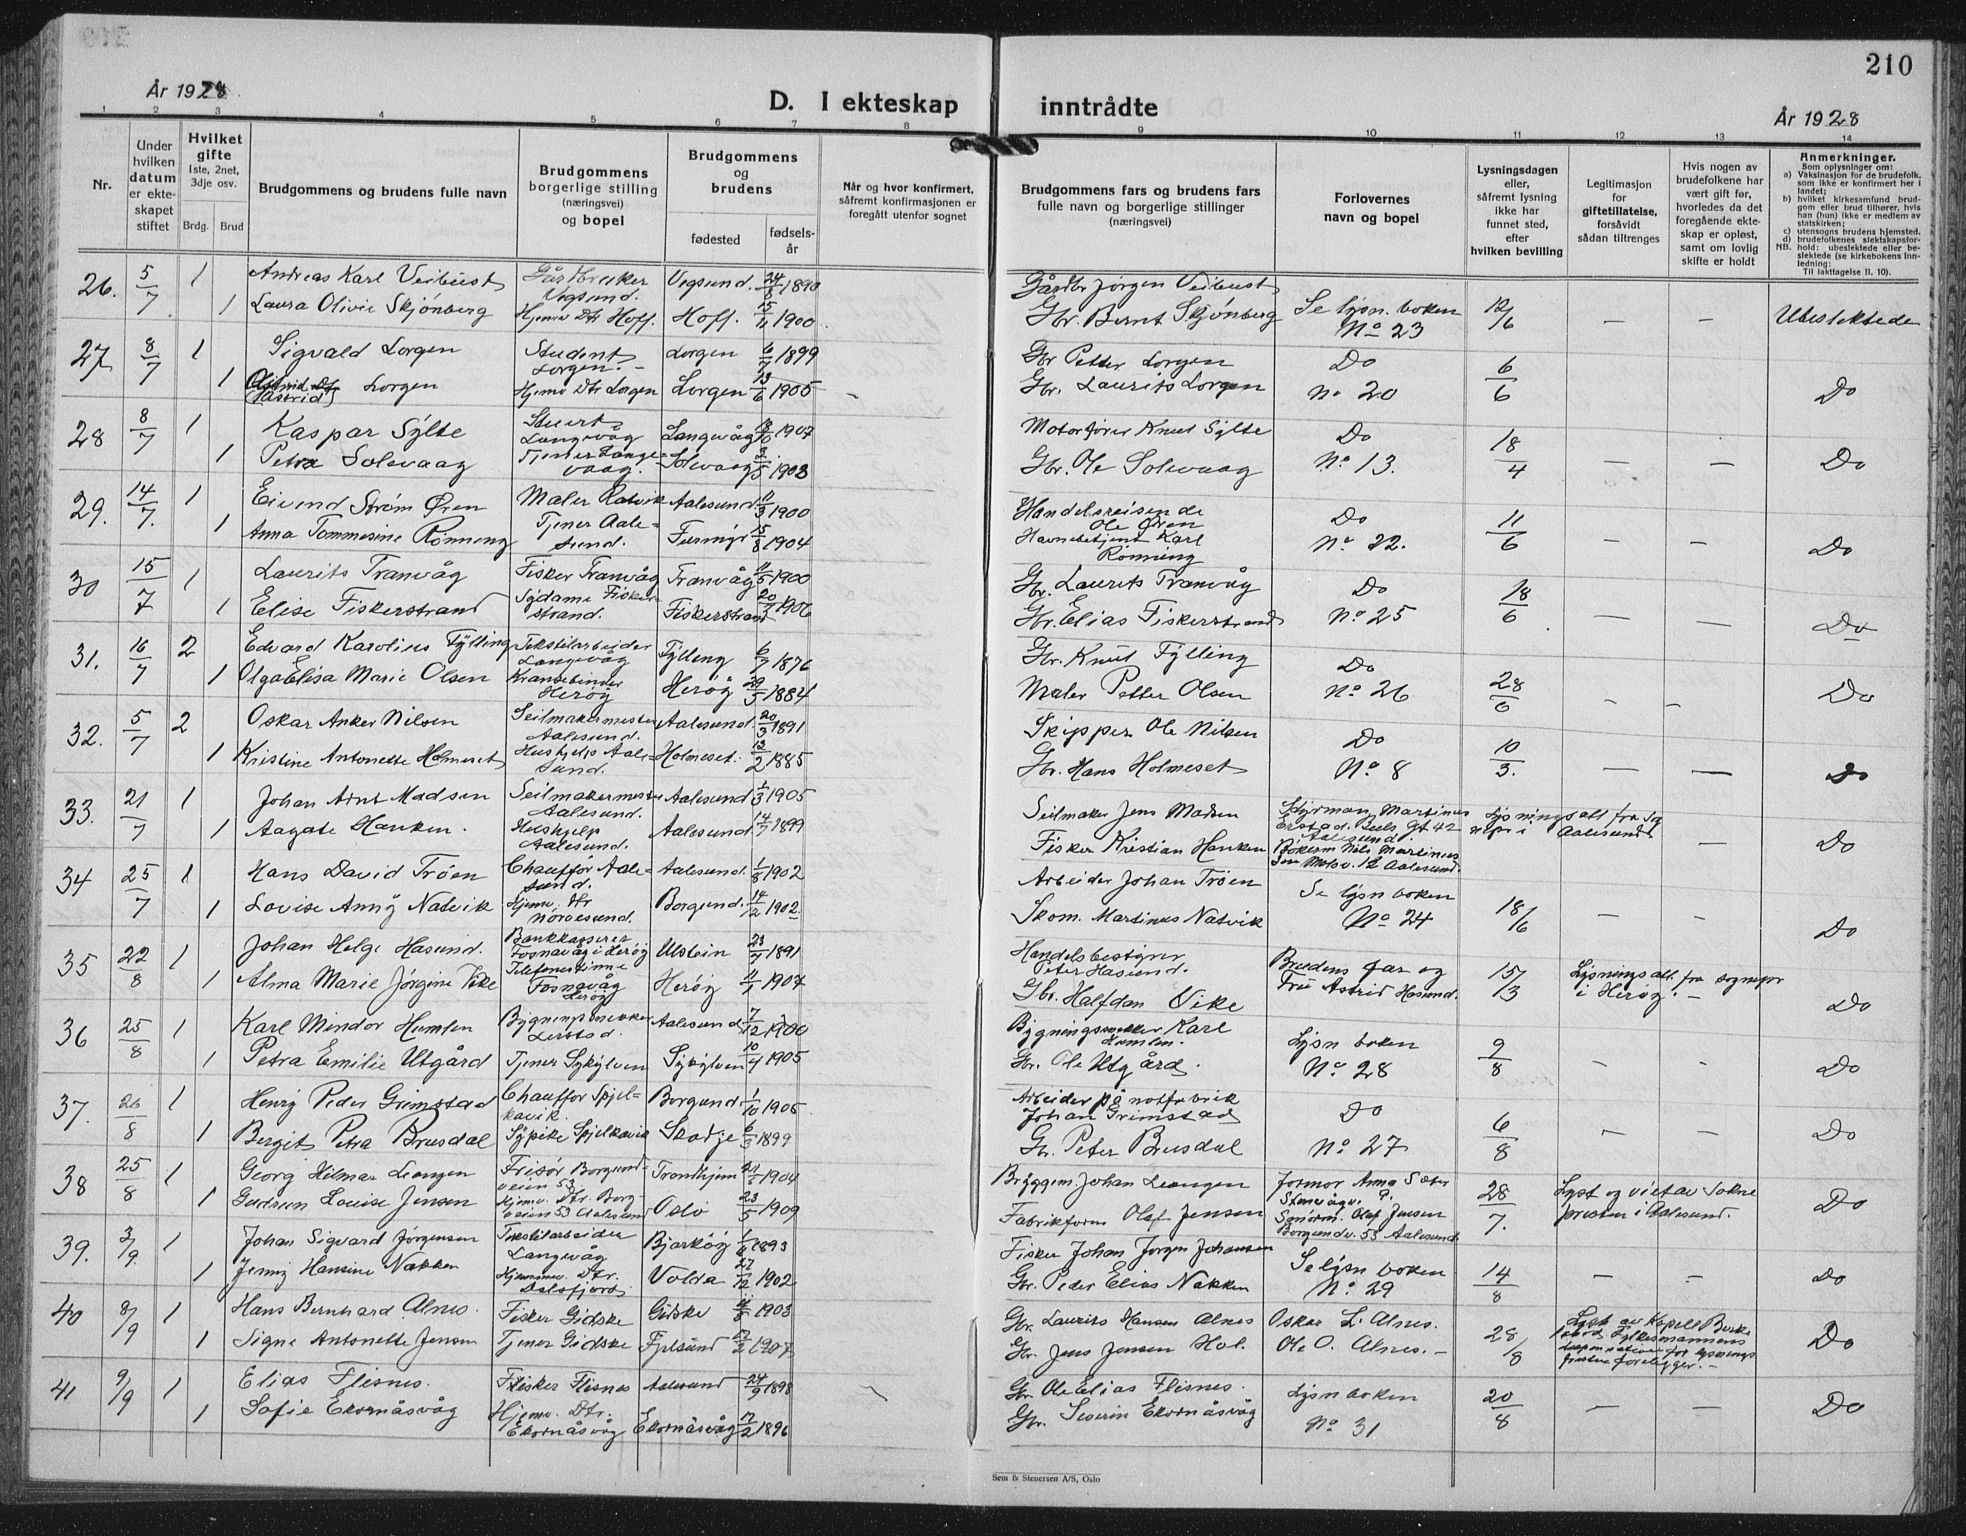 210
År 1928
D. I ekteskap inntrådte
År 1928
1 2 3 4 5 6 7 8 9 10 11 12 13 14
Nr.
Under hvilken datum er ekteskapet stiftet
Hvilket gifte
1ste, 2net, 3dje osv.
Brdg. Brud
Brudgommens og brudens fulle navn
Brudgommens borgerlige stilling (næringsvei) og bopel
Brudgommens og brudens
fødested
fødselsår
Når og hvor konfirmert, såfremt konfirmasjonen er foregått utenfor sognet
Brudgommens fars og brudens fars fulle navn og borgerlige stillinger (næringsvei)
Forlovernes navn og bopel
Lysningsdagen eller, såfremt lysning ikke har funnet sted, efter hvilken bevilling
Legitimasjon for giftetillatelse, forsåvidt sådan tiltrenges
Hvis nogen av brudefolkene har vært gift før, hvorledes da det foregående ekteskap er opløst, samt om lovlig skifte er holdt
Anmerkninger.
Som oplysninger om:
a) Vaksinasjon for de brudefolk, som ikke er konfirmert her i landet;
b) hvilket kirkesamfund brudgom eller brud tilhører, hvis han (hun) ikke er medlem av statskirken;
c) utensogns brudens hjemsted.
d) brudefolkenes slektskapsforhold: ubeslektede eller beslektede (se kirkebokens Innledning:
NB.
Til iakttagelse II, 10).
26. 5/7 1 Andreas Karl Veibust Gårdbruker Vegsund. Vegsund. 24/8 1890 Gårdbr Jørgen Veibust
1 Laura Olivie Skjønberg Hjemv Dtr Hoff. Hoff. 15/11 1900 Gbr. Bernt Skjønberg Se lysn. boken No 23 12/6 — — Ubeslektede
27 8/7 1 Sigvald Lorgen Student Lorgen. Lorgen 6/7 1899 Gbr Petter Lorgen Do
1 (Astrid) Lorgen Hjemv Dtr Lorgen Lorgen 13/6 1905 Gbr. Laurits Lorgen No 20 6/6 Do
28 8/7 1 Kaspar Sylte Langevåg Langevåg 1907 Motorfører Knut Sylte Do
1 Petra Solevaag Tjener Langevaag. Solvaag 1903 Gbr. Ole Solevaag No 13. 18/4 — — Do
29. 14/7. 1 Eivind Strøm Øren Maler Ratvik Aalesund 1/3 1900 Handelsreisende Ole Øren Do
1 Anna Tommesine Rønning Tjener Aalesund. 15/8 1904 Havnebetjent Karl Rønning No 22. 11/6 — — Do
30 15/7 1 Laurits Tranvåg Fisker Tranvåg Tranvåg 11/5 1900 Gbr. Laurits Tranvåg Do
1 Elise Fiskerstrand Sydame Fiskerstrand. Fiskerstrand 1906 Gbr. Elias Fiskerstrand No 25 18/6 — — Do
31. 16/7 2 Edvard Karolius Tylling Tekstilarbeider Langevåg Tylling 6/7 1876 Gbr. Knut Tylling Do
1 Olga Elisa Marie Olsen Kransebinder Herøy Herøy 29/5 1884 Maler Petter Olsen No 26 28/6 — — Do
32. 5/7 2 Oskar Anker Nilsen Seilmakermester Aalesund Aalesund. 20/3 1891 Skipper Ole Nilsen Do
1 Kristine Antonette Holmeset Hushjelp Aalesund. Holmeset. 12/2 1885 Gbr. Hans Holmeset No 8 10/3. — — Do
33. 21/7 1 Johan Arnt Madsen Seilmakermester Aalesund. Aalesund 1/3 1905 Seilmaker Jens Madsen Styrman Martinus Erstad. Buls Gt 42 Aalesund. Lysningsatt fra i Aalesund.
1 Aagate Hanken. Hushjelp Aalesund. Aalesund 14/7 1899 Fisker Kristian Hanken Nils Martinus 12 Aalesund. — Do
34 25/7 1 Hans David Trøen Chauffør Aalesund. Aalesund. 1/8 1902 Arbeider Johan Trøen Se lysn boken
1 Lovise Anny Natvik Hjemv. Dtr Nørvesund. Borgund. 14/12 1902. Skom. Martinus Natvik No 24 18/6 — — Do
35 22/8 1 Johan Helge Hasund. Bankkasserer Fosnavåg i Herøy Ulstein 23/7 1891 Handelsbestyrer Peter Hasund. Brudens far og Fru Astrid Hasund. 15/3 Lysningsatt. fra sognepr i Herøy. —
1 Alma Marie Jørgine Vike Telefonistinne Fosnavåg Herøy Herøy 11/1 1907 Gbr. Halfdan Vike Do
36 25/8 1 Karl Mindor Humlen Bygningssnekker Lerstad Aalesund 7/12 1900 Bygningssnekker Karl Humlen. Lysn boken
1 Petra Emilie Utgård Tjener Sykylven Sykylven 10/4 1905 Gbr. Ole Utgård. No 28 9/8 — — Do
37. 26/8 1 Henry Peder Grimstad Chauffør Spjelkavik. Borgund 1/10 1905 Arbeider på notfabrik Johan Grimstad Do
1 Bergit Petra Brusdal Sypike Spjelkavik Skodje 6/3 1899 Gbr. Peter Brusdal No 27 6/8 — — Do
38 25/8 1 Georg Hilmar Liangen Frisør Borgundveien 53. Trondhjem 1904 Bryggem. Johan Liangen Formor Anna Sæter
1 Gudrun Louise Jensen Hjemv. Dtr. Borgveien 53 Aalesund Oslo 23/5 1909 Fabrikform Olaf Jensen Olaf Jensen Borgundv. 53 Aalesund 28/7. Lyst og viet av Soknepresten i Aalesund. Do
39. 3/9. 1 Johan Sigvard Jørgensen Tekstilarbeider Langevåg Bjarkøy 1893 Fisker Johan Jørgen Johansen Se lysn boken
1 Jenny Hansine Nakken Hjemmev. Dtr. Dalsfjord Volda 27/12 1902 Gbr. Peder Elias Nakken No 29 14/8 — — Do
40 8/9 1 Hans Bernhard Alnes. Fisker Gidske Gidske 1903 Gbr. Laurits Hansen Alnes Oskar L. Alnes.
1 Signe Antonette Jensen Tjener Gidske 17/2 1907 Gbr. Jens Jensen Hol. Ole O. Alnes. — 28/8 Lyst av Kapell Fylkesmannens for lysnings foreligger. — Do
41 9/9 1 Elias Flisnes. Fisker Flisnes Aalesund 24/9 1898 Gbr. Ole Elias Flisnes. Lysn boken
1 Sofie Ekornåsvåg Hjemv. Dtr. Ekornåsvåg Ekornåsvåg 17/2 1896 Gbr. Severin Ekornåsvåg No 31 20/8 — — Do
Sem & Stenersen A/S, Oslo